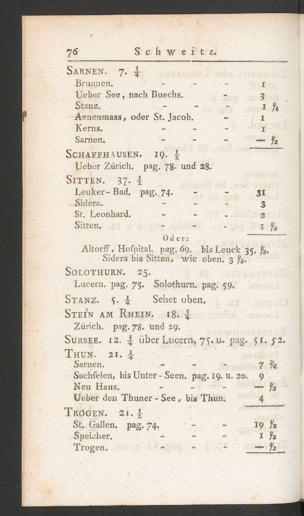 76 Schweitz.
SARNEN. 7. 1/4
Brunnen. - - - 1
Ueber See, nach Buochs. - 3
Stanz. - - - 1 1/4
Aenenmaas, oder St. Jacob. - 1
Kerns. - - - 1
Sarnen. - - - — 1/2
SCHAFFHAUSEN. 19. 1/2
Ueber Zürich. pag. 78. und 28.
SITTEN. 37. 1/2
Leuker-Bad. pag. 74. - - 31
Siders. - - - 3
St. Leonhard. - - - 2
Sitten. - - - 1 1/2
Oder:
Altorff, Hospital. pag. 69. bis Leuck 35. 1/2.
Siders bis Sitten, wie oben. 3 1/2.
SOLOTHURN. 25.
Lucern. pag. 75. Solothurn. pag. 59.
STANZ. 5. 1/4 Sehet oben.
STEIN AM RHEIN. 18. 1/4
Zürich. pag. 78. und 29.
SURSEE. 12. 1/4 über Lucern, 75. u. pag. 51. 52.
THUN. 21. 1/4
Sarnen. - - - 7 1/4
Sachselen, bis Unter-Seen. pag. 19. u. 20. 9
Neu Haus. - - - — 1/2
Ueber den Thuner-See, bis Thun. 4
TROGEN. 21. 1/2
St. Gallen. pag. 74. - - 19 1/2
Speicher. - - - 1 1/2
Trogen. - - - — 1/2